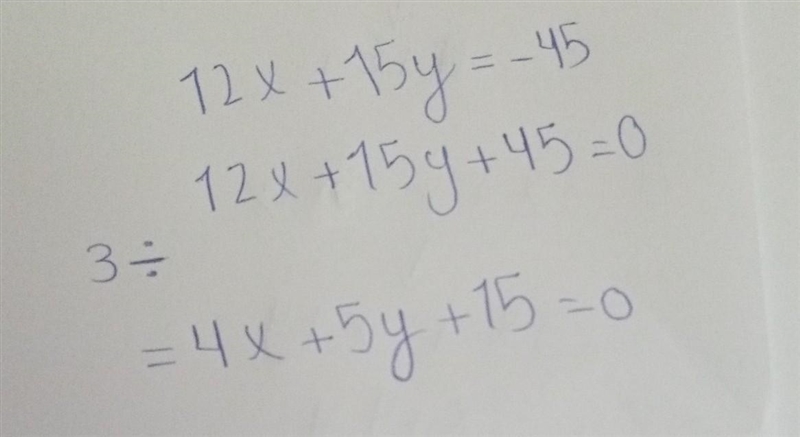 12x+15y=-45
12x+15y+45=0
3÷
=4x+5y+15=0